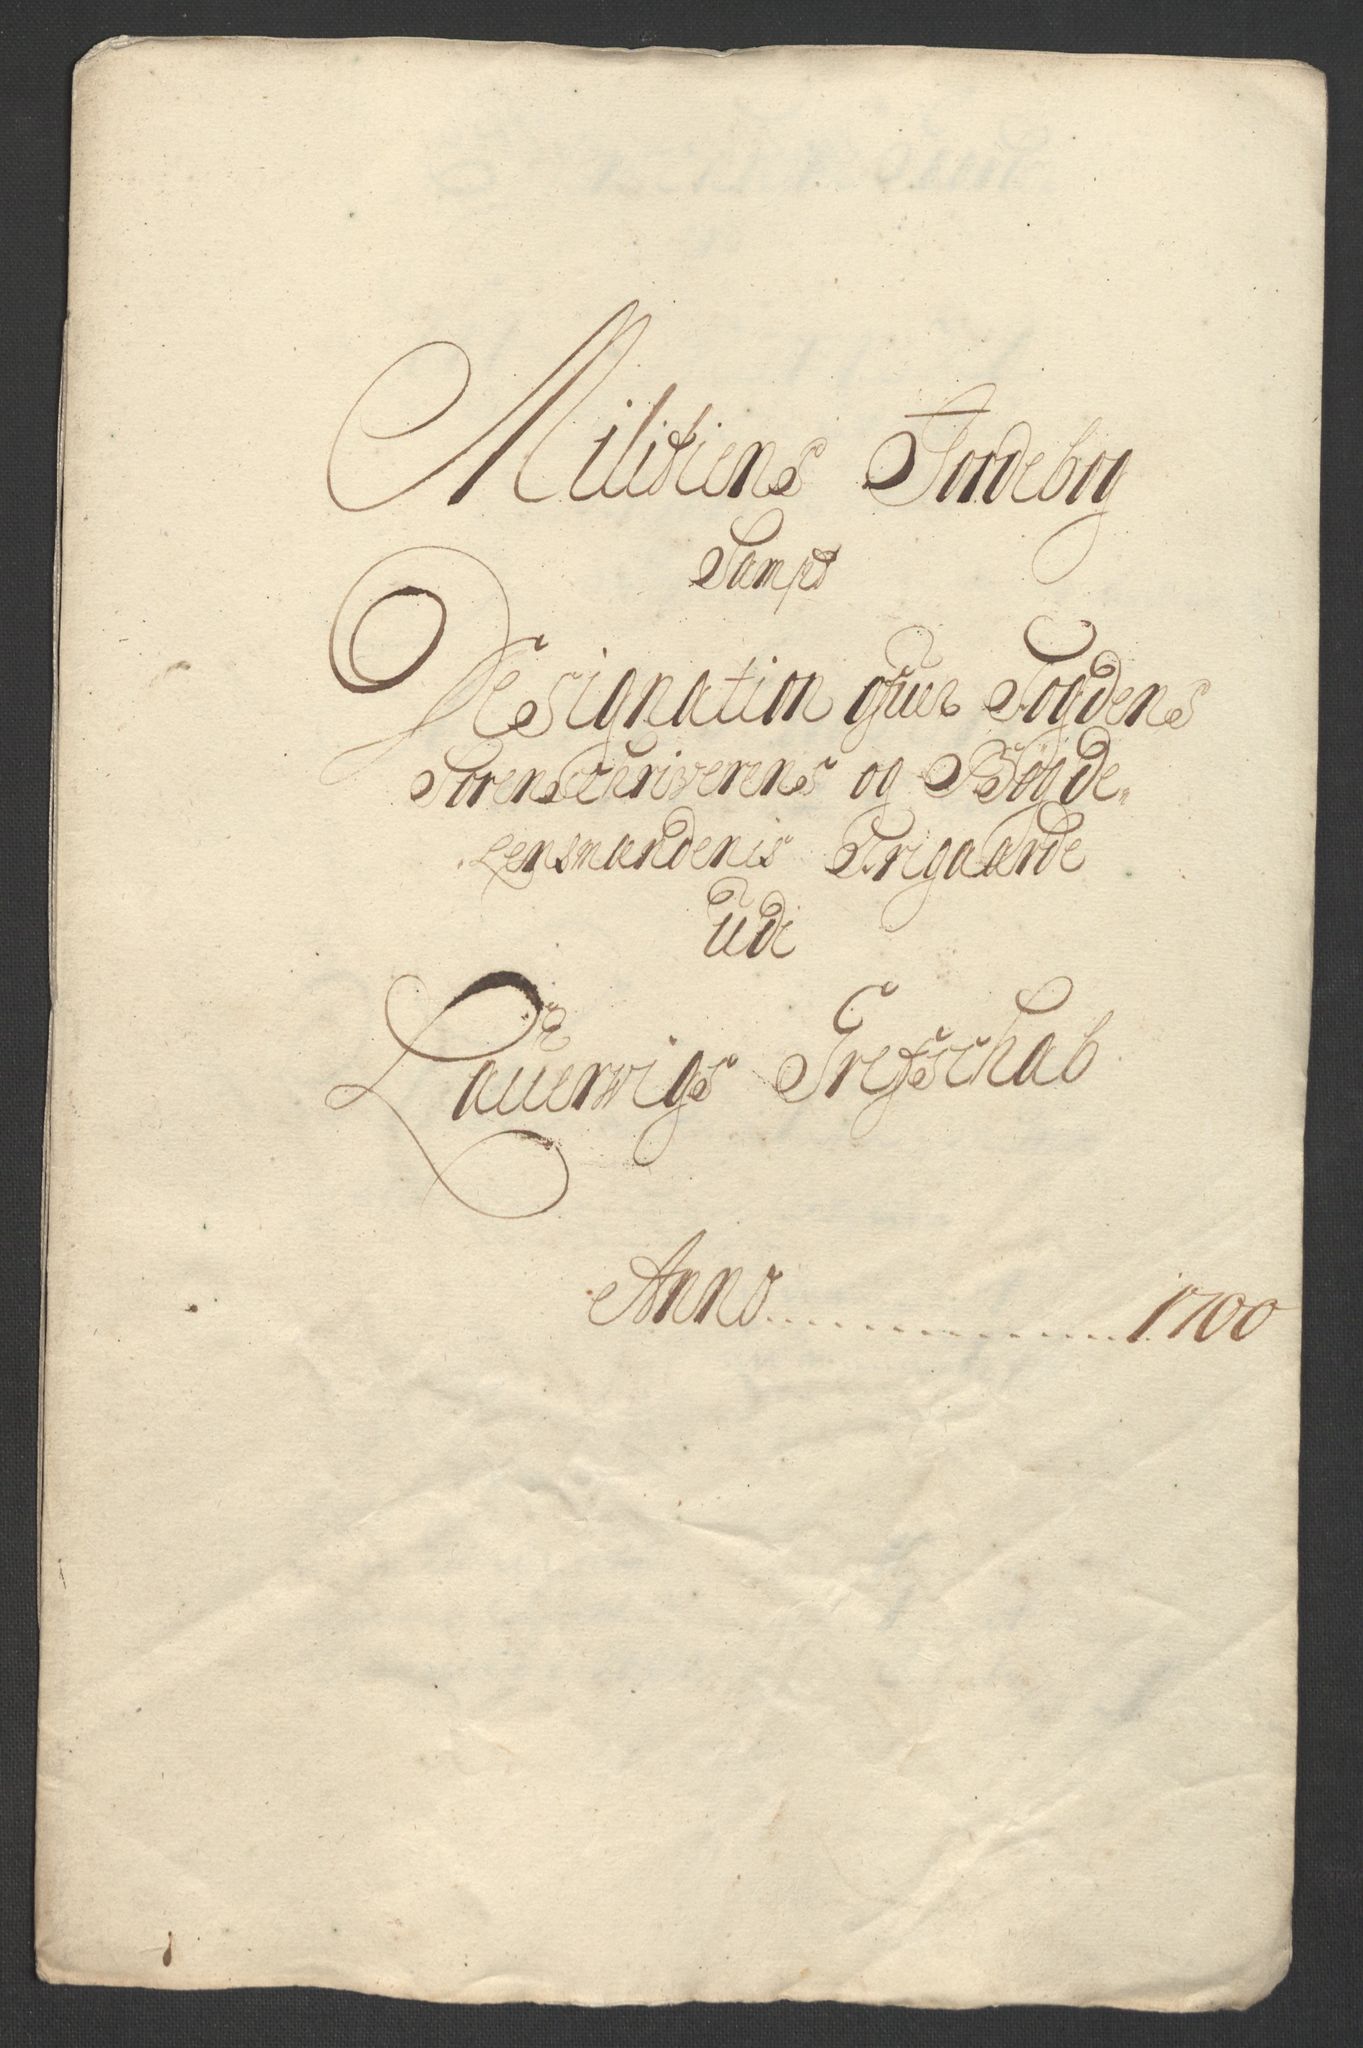 Militiens Jordebog
Sampt
Designation ofuer Fogdens
Sorenschriwerens og Bøgde-
Lensmandenis Frigaarde
Udi
Lauerwigs Grefschab
Anno 1700